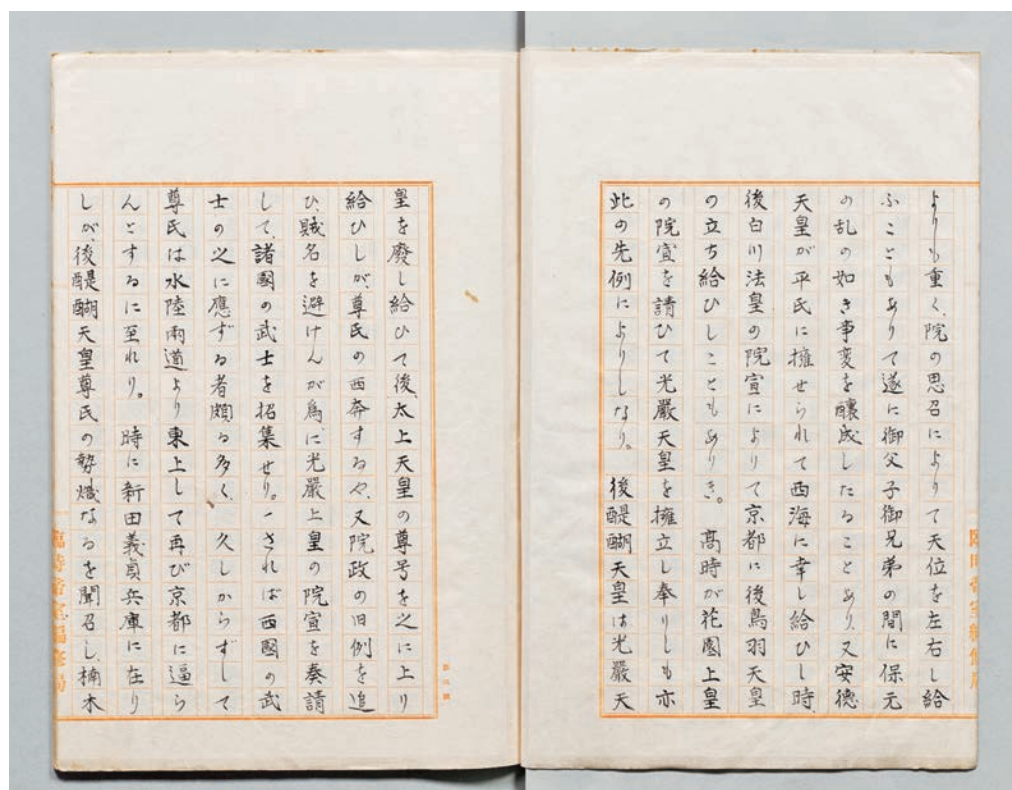 よりも重く、院の思召によりて天位を左右し給
ふこともありて遂に御父子御兄弟の間に保元
の乱の如き事変を醸成したることあり、又安徳
天皇が平氏に擁せられて西海に幸し給ひし時、
後白川法皇の院宣によりて京都に後鳥羽天皇
の立ち給ひしこともありき。高時が花園上皇
の院宣を請ひて光厳天皇を擁立し奉りしも亦
此の先例によりしなり。後醍醐天皇は光厳天
皇を廃し給ひて後、太上天皇の尊号を之に上り
給ひしが、尊氏の西奔するや、又院政の旧例を追
ひ、賊名を避けんが為に光厳上皇の院宣を奏請
して、諸國の武士を招集せり。されば西國の武
士の之に應ずる者頗る多く、久しからずして
尊氏は水陸両道より東上して再び京都に逼ら
んとするに至れり。時に新田義貞兵庫に在り
しが、後醍醐天皇尊氏の勢熾なるを聞召し、楠木
臨時帝室編修局